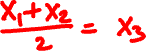 x₁+x₂/2 = x₃